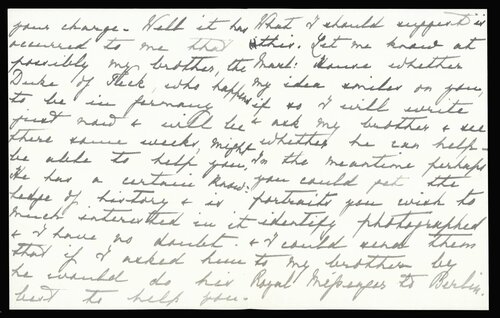 your charge. Well it has
occurred to me that
possibly my brother, the
Duke of Teck, who happens
to be in Germany
just now & will be
there some weeks, might
be able to help you,
He has a certain know:
ledge of history & is
much interested in it
& I have no doubt
that if I asked him
he would do his
best to help you.
What I should suggest is
this. Let me know at
Marl: House whether
my idea smiles on you,
if so I will write
& ask my brother & see
whether he can help—
In the meantime perhaps
you could get the
portraits you wish to
identify photographed
& I could send them
to my brother by
Royal Messenger to Berlin.